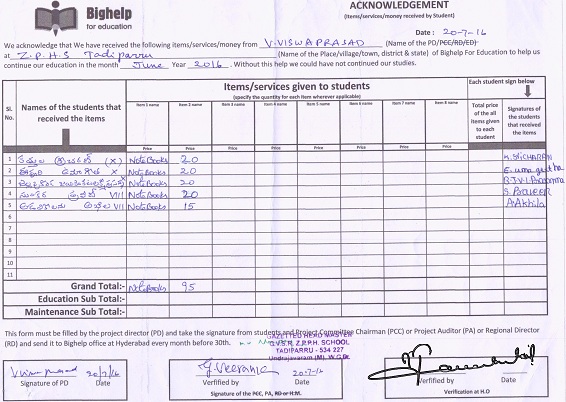 Bighelp
for education
ACKNOWLEDGEMENT
(Items/services/money received by Student)
Date : 20-7-16
We acknowledge that We have received the following items/services/money from V.VISWAPRASAD (Name of the PD/PCC/RD/ED)
at Z.P.H.S Tadiparru (Name of the Place/village/town, district & state) of Bighelp For Education to help us
continue our education in the month June Year 2016. Without this help we could have not continued our studies.
Sl. No. Names of the students that received the items Items/services given to students Each student sign below
(specify the quantity for each item wherever applicable)
Item 1 name Item 2 name Item 3 name Item 4 name Item 5 name Item 6 name Item 7 name Item 8 name Total price of the all items given to each student Signatures of the students that received the items
Price Price Price Price Price Price Price Price
1 (X) NoteBooks 20
2 X NoteBooks 20
3 NoteBooks 20
4 VIII NoteBooks 20
5 VII NoteBooks 15 A.Akhila
6
7
8
9
10
11
Grand Total:- NoteBooks 95
Education Sub Total:-
Maintenance Sub Total:-
This form must be filled by the project director (PD) and take the signature from students and Project Committee Chairman (PCC) or Project Auditor (PA) or Regional Director
(RD) and send it to Bighelp office at Hyderabad every month before 30th.
GAZETTED HEAD MASTER
Z.P.P.H. SCHOOL
TADIPARRU - 534 227
Undrajavaram (M), W.G.Dt.
20/7/16
Signature of PD Date
20-7-16
Verified by Date
Signature of the PCC, PA, RD or H.M.
Verified by Date
Verification at H.O